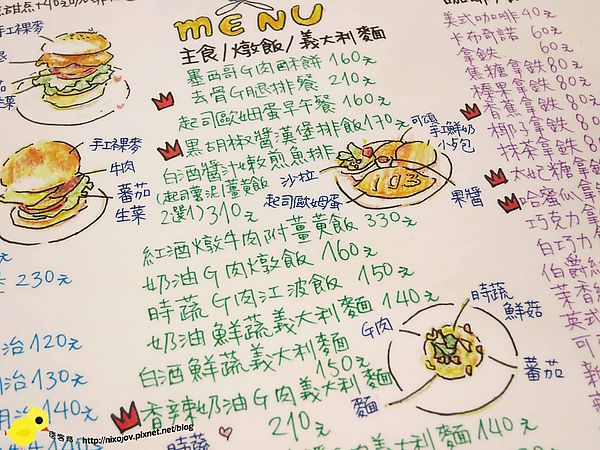 MENU
主食/燉飯/義大利麵
墨西哥G肉酥餅 160元
去骨G腿排餐 210元
起司歐姆蛋早午餐 160元
黑胡椒醬漢堡排飯170元
白酒醬汁嫩煎魚排
(起司薯泥/薑黃飯
2選1) 310元
紅酒燉牛肉附薑黃飯 330元
奶油G肉燉飯 160元
時蔬G肉江波飯 150元
奶油鮮蔬義大利麵 140元
白酒鮮蔬義大利麵
150元
香辣奶油G肉義大利麵
210元
時蔬
140元
手工裸麥
番茄
生菜
手工裸麥
牛肉
番茄
生菜
230元
治120元
治130元
140元
可頌
手工鮮奶
小吐包
沙拉
起司歐姆蛋
果醬
時蔬
鮮菇
G肉
番茄
麵
美式咖啡40元
卡布奇諾 60元
拿鐵 60元
焦糖拿鐵80元
榛果拿鐵80元
香蕉拿鐵80元
椰子拿鐵80元
抹茶拿鐵80元
太妃糖拿鐵
哈蜜瓜拿鐵
巧克力拿
白巧克力
伯爵
茉香
英式
可
痞客邦 : http://nixojov.pixnet.net/blog